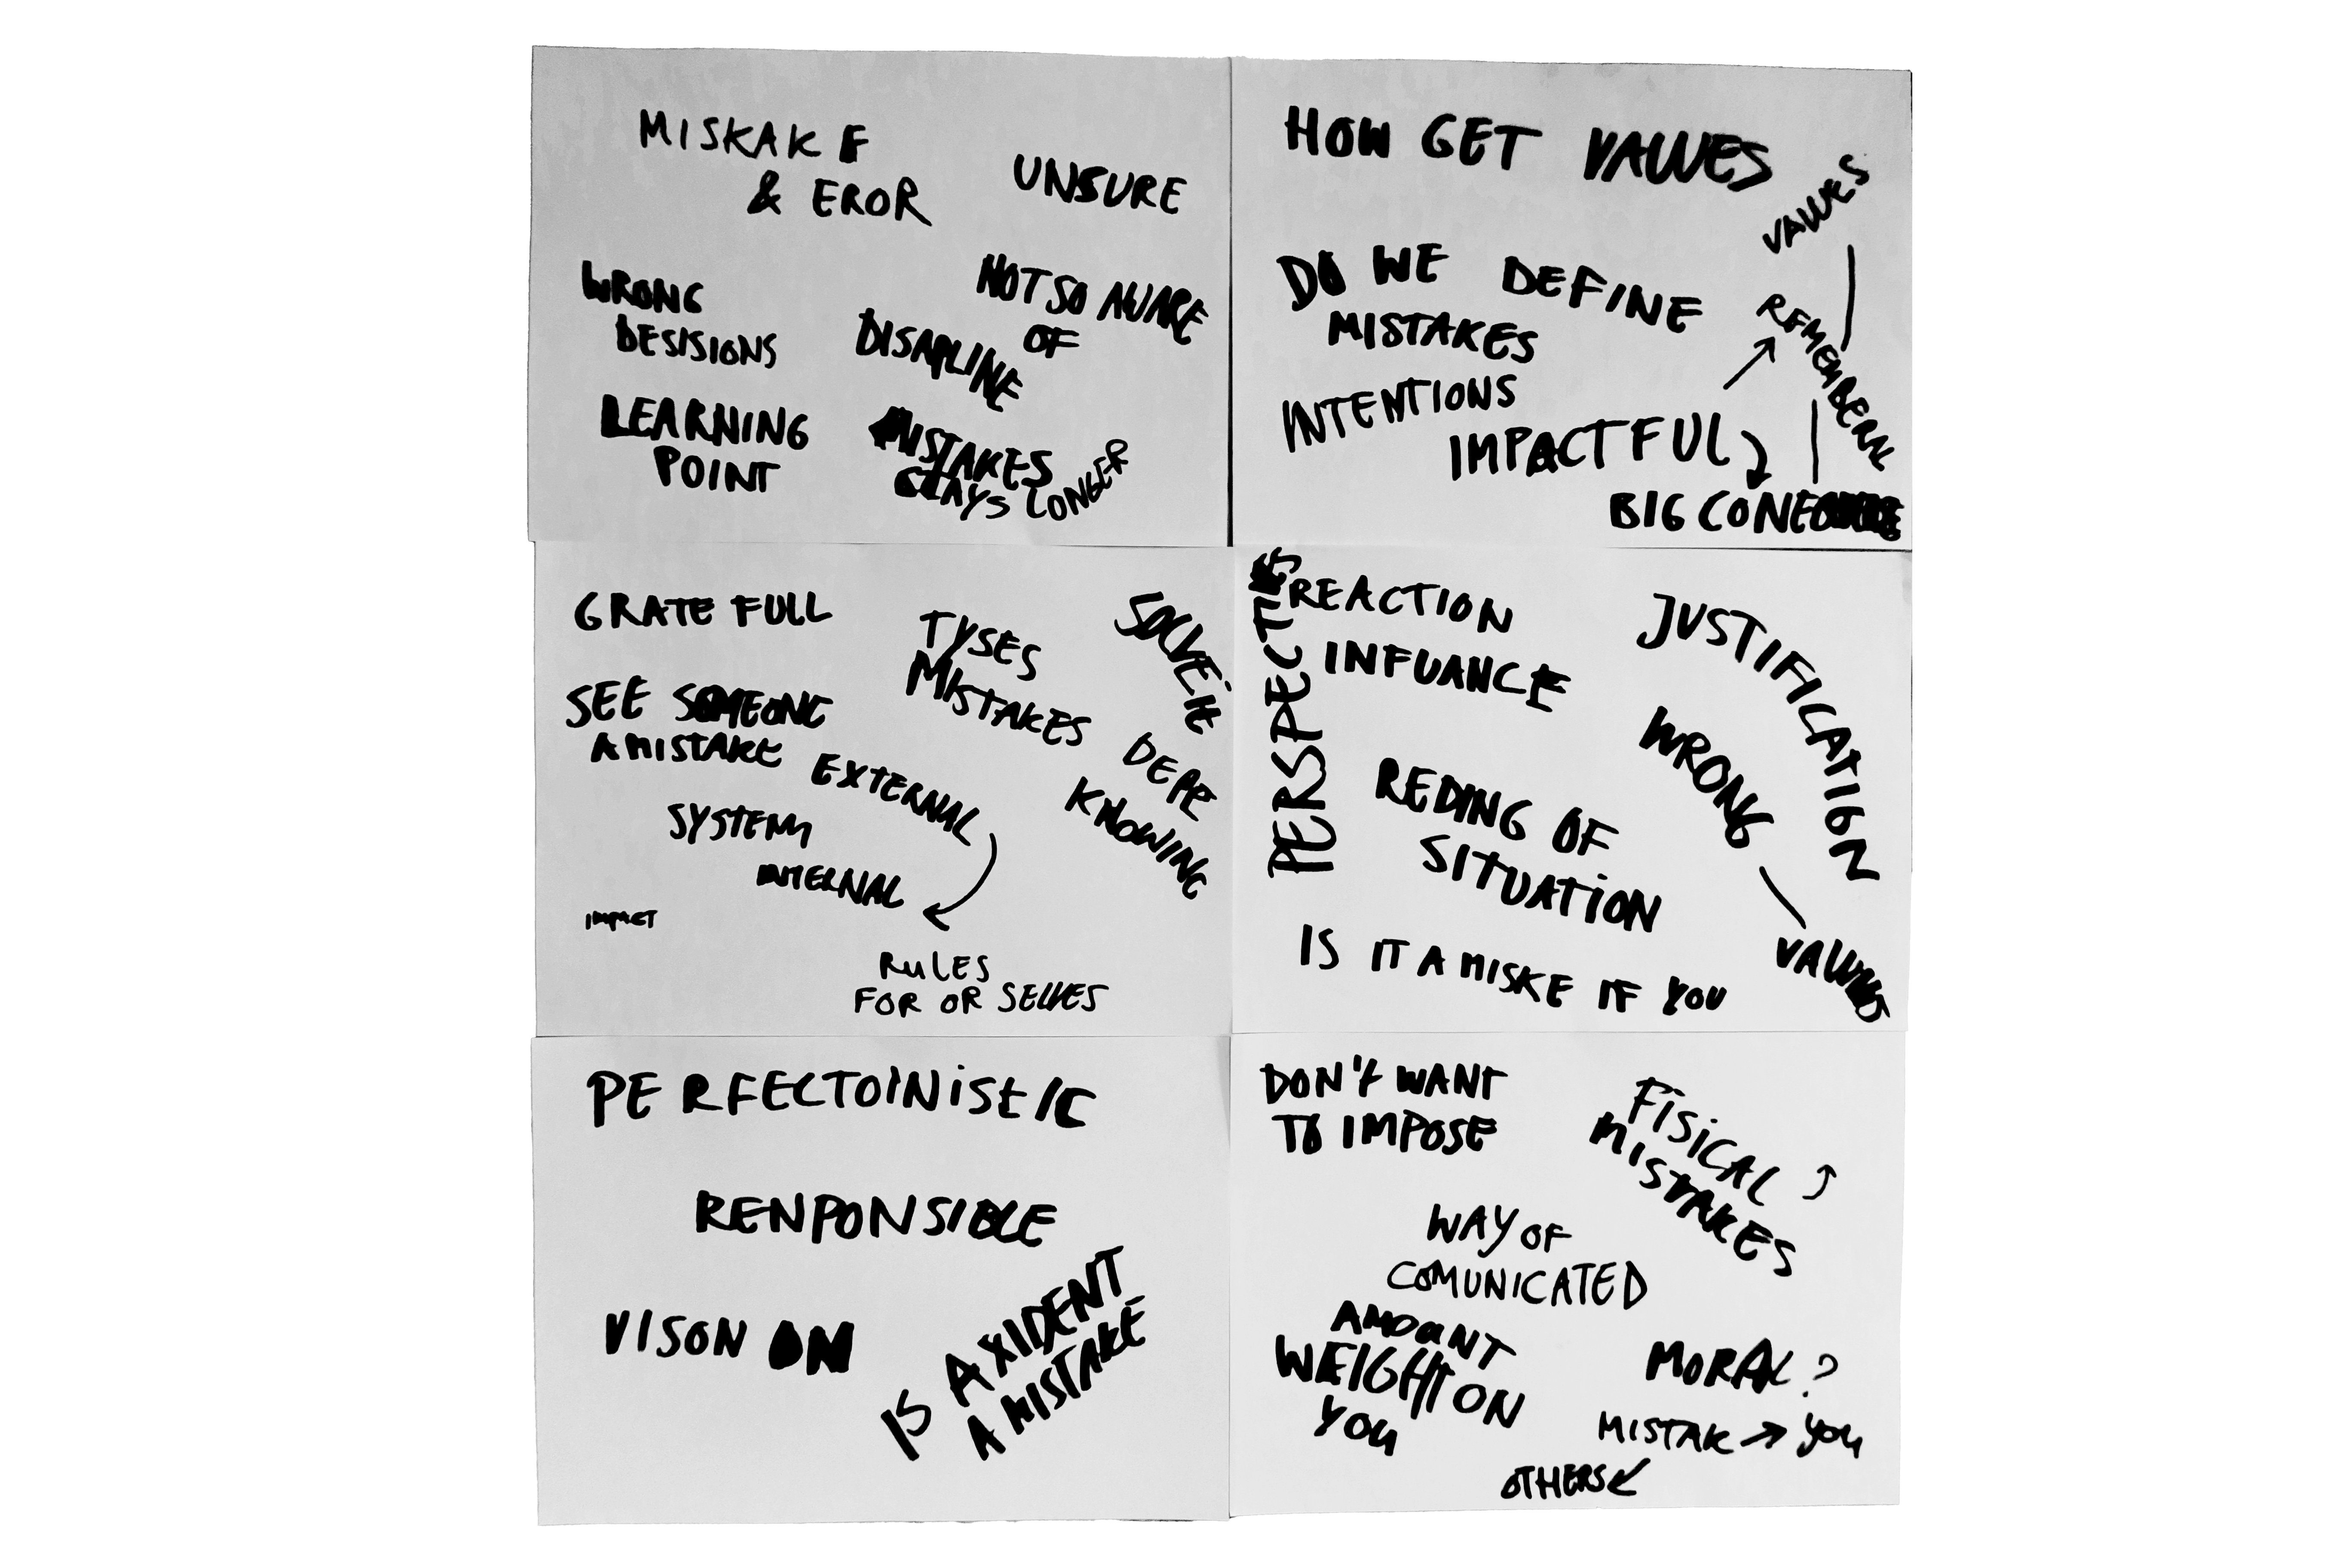 MISKAKE
& EROR
UNSURE
WRONG
DESISIONS
NOT SO AWARE
OF
DISAPLINE
LEARNING
POINT
MISTAKES
STAYS LONGER
HOW GET VALUES
VALUES
DO WE DEFINE
MISTAKES
REMEMBERN
INTENTIONS
IMPACTFUL
BIG
GRATE FULL
TYSES
MISTAKES
SEE SOMEONE
A MISTAKE
EXTERNAL
SYSTEM
INTERNAL
DEPE
KNOWING
IMPACT
RULES
FOR OR SELVES
PERSPECTIVES
REACTION
INFUANCE
JUSTIFICATION
WRONG
REDING OF
SITUATION
IS IT A MISKE IF YOU
PERFECTOINISTIC
RENPONSIBLE
VISON ON
IS AXIDENT
A MISTAKE
DON'T WANT
TO IMPOSE
FISICAL
MISTAKES
WAY OF
COMUNICATED
AMOUNT
WEIGHT ON
YOU
MORAL?
MISTAK → YOU
OTHERS